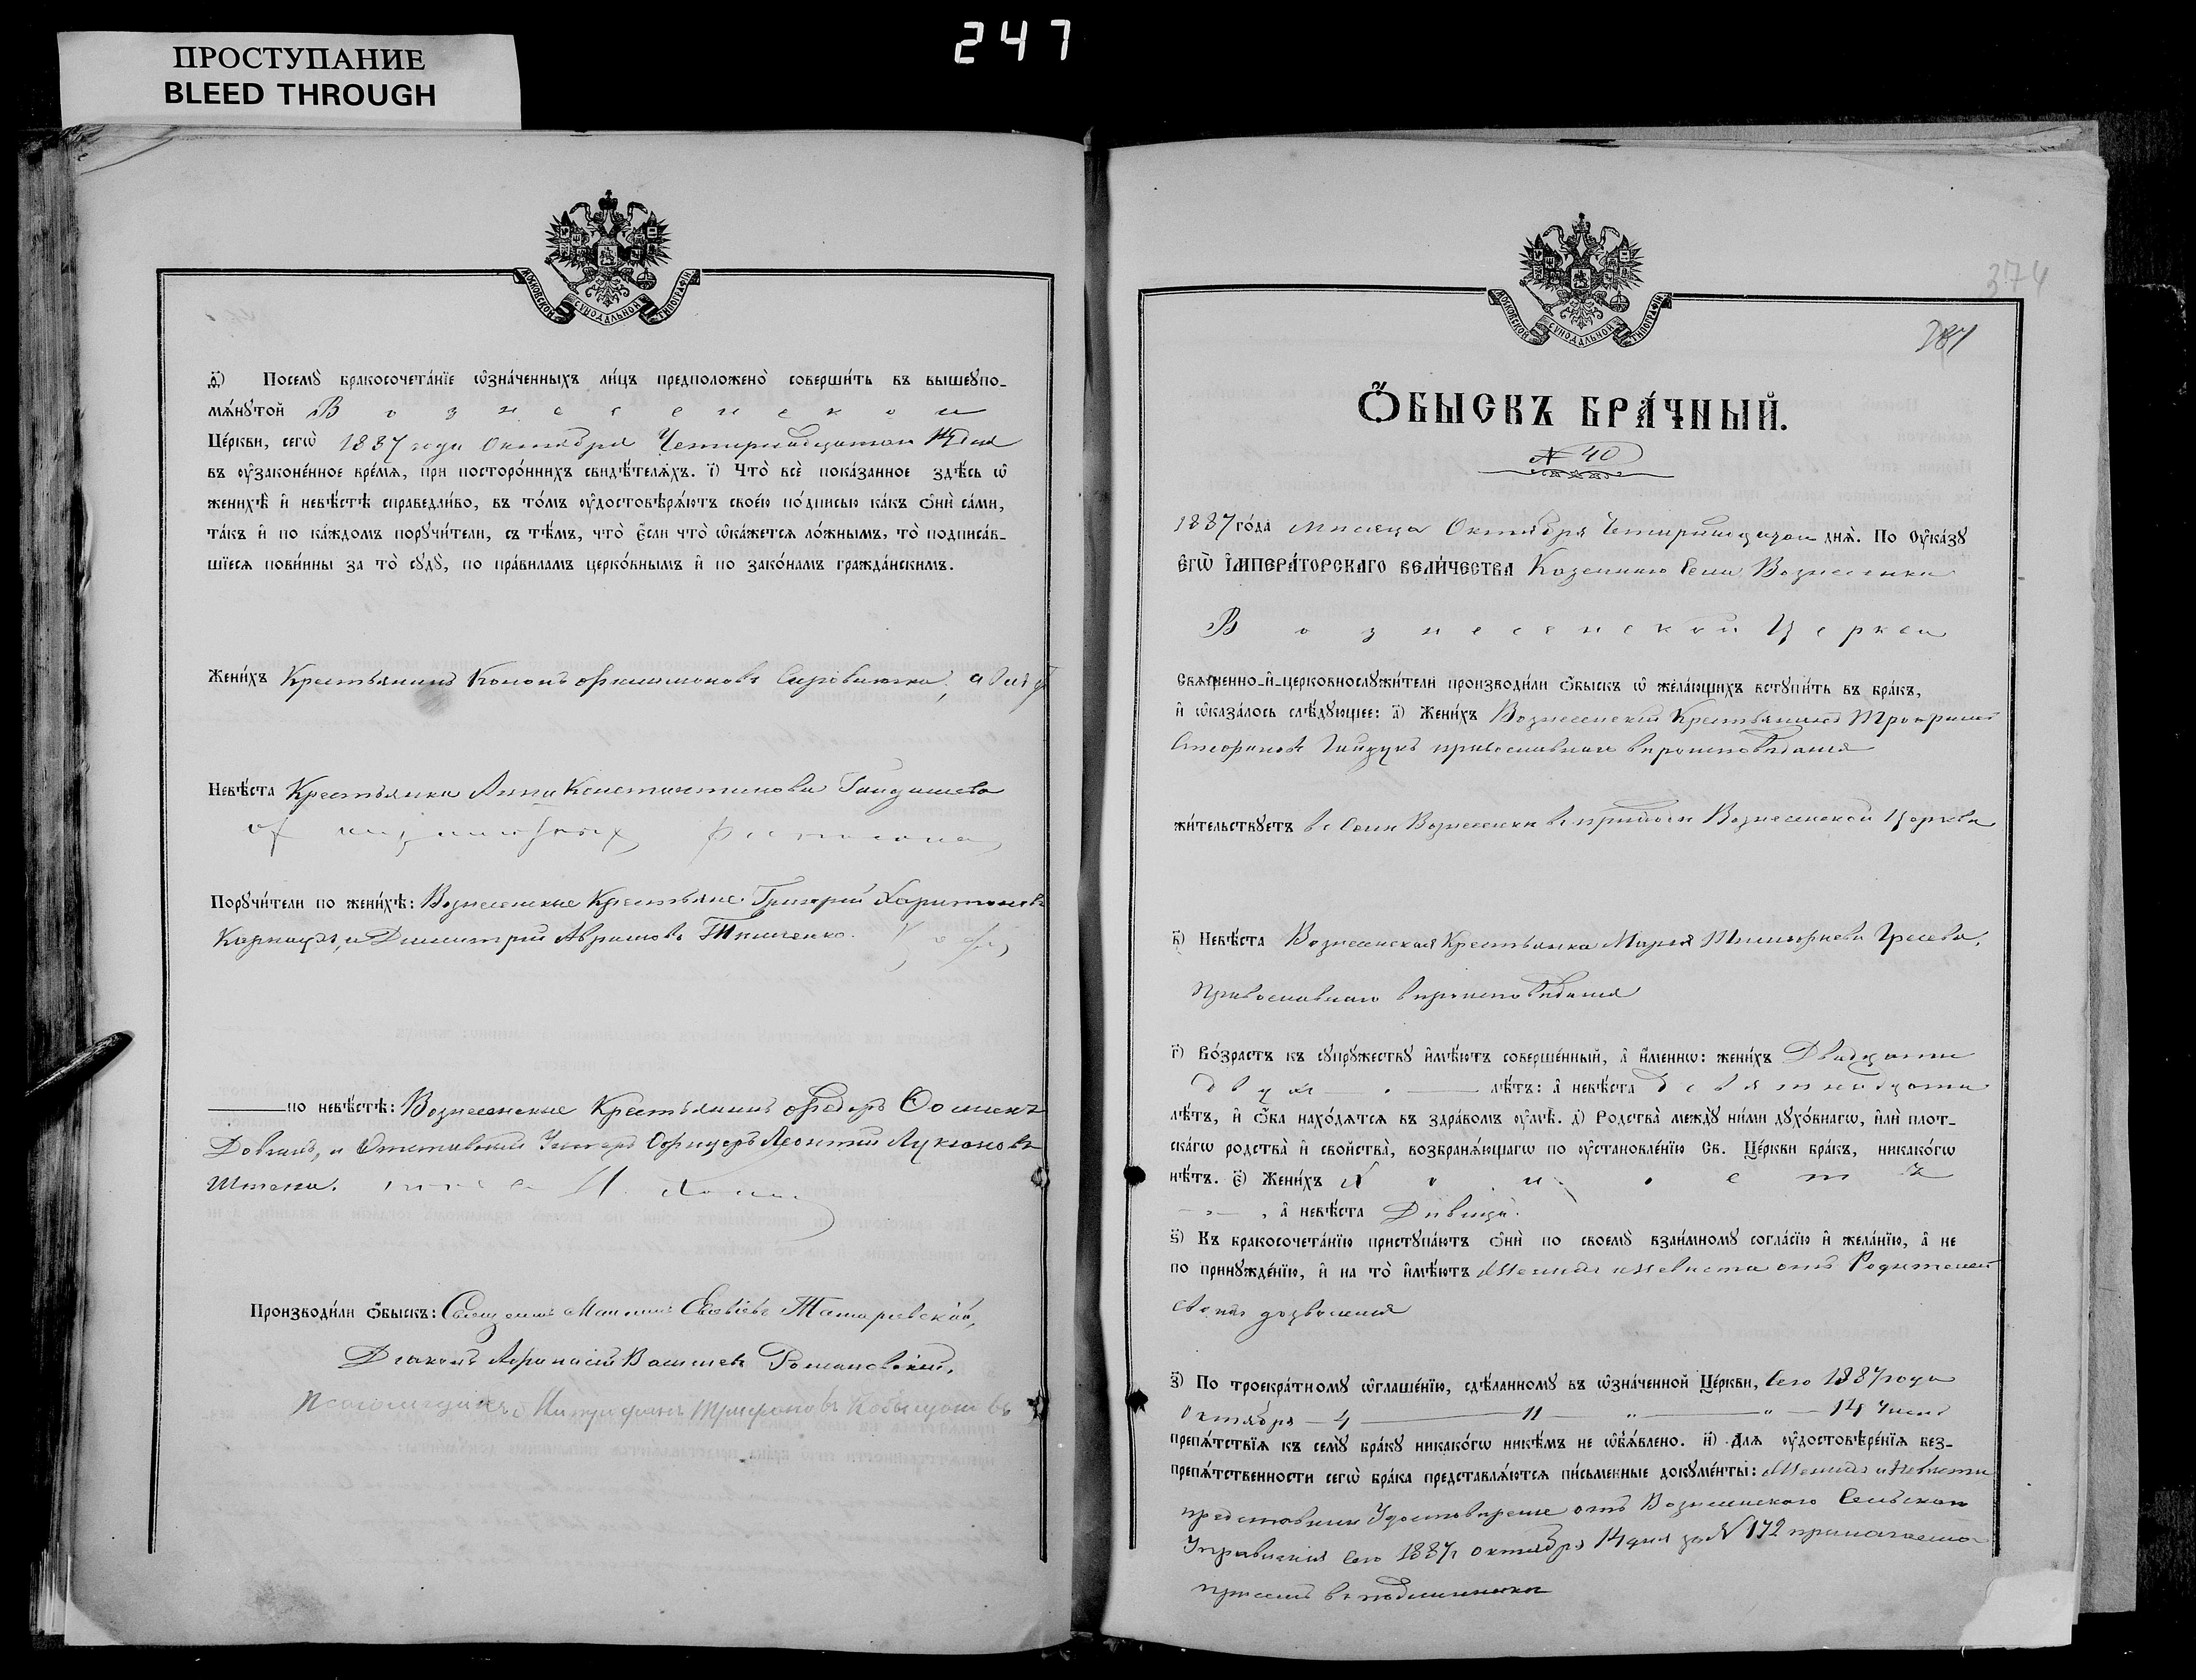 247
ПРОСТУПАНИЕ
BLEED THROUGH
МОСКОВСКОЙ СѴНОДАЛЬНОЙ ТИПОГРАФІИ
ѳ҃) Посемꙋ̀ бракосочета́нїе ѡ҆зна́ченныхъ ли́цъ предположено̀ соверши́ть въ вышеꙋпо-
мѧ́нꙋтой Вознесенской
Це́ркви, сегѡ̀ 1887 года Октября Четырнадцатого 14 дня
въ ᲂу҆зако́ненное вре́мѧ, при посторо́ннихъ свидѣ́телѧхъ. і҃) Что̀ всѐ пока́занное здѣ́сь ѡ҆
женихѣ̀ и҆ невѣ́стѣ справедли́во, въ то́мъ ᲂу҆достовѣрѧ́ютъ свое́ю по́дписью ка́къ ѻ҆нѝ са́ми,
та́къ и҆ по ка́ждомъ порꙋчи́тели, съ тѣ́мъ, что̀ є҆́сли что̀ ѡ҆ка́жетсѧ ло́жнымъ, то̀ подписа́в-
шїесѧ пови́нны за то̀ сꙋдꙋ̀, по пра́виламъ церко́внымъ и҆ по зако́намъ гражда́нскимъ.
Жени́хъ Крестьянинъ Кононъ Филимоновъ
Невѣ́ста Крестьянка Анна Константинова
Порꙋчи́тели по женихѣ̀: Вознесенские Крестьяне Григорий Харитоновъ
и Димитрий Аврамовъ Ткаченко.
по невѣ́стѣ: Вознесенские Крестьянинъ Федоръ
и Отставный Унтеръ Офицеръ Леонтий Лукьяновъ
Производи́ли ѻ҆́быскъ: Священникъ Татаревскій,
Дьяконъ Афанасій Васильевъ Романовскій,
Псаломщикъ Трифоновъ
МОСКОВСКОЙ СѴНОДАЛЬНОЙ ТИПОГРАФІИ
374
Ѻ҆́БЫСКЪ БРА́ЧНЫЙ.
№ 40
1887 го́да месяца Октября Четырнадцатого днѧ̀. По ᲂу҆ка́зꙋ
Є҆ГѠ̀ И҆МПЕРА́ТОРСКАГО ВЕЛИ́ЧЕСТВА Казенного Села Вознесенки
Вознесенской Церкви
Свѧще́нно-и҆-церковнослꙋжи́тели производи́ли ѻ҆́быскъ ѡ҆ жела́ющихъ встꙋпи́ть въ бра́къ,
и҆ ѡ҆каза́лось слѣ́дꙋющее: а҃) Жени́хъ Вознесенский Крестьянинъ Трофимъ
Стефановъ Гайдукъ православного вероисповедания
жи́тельствꙋетъ в Селе Вознесенки в приходе Вознесенской Церкви
в҃) Невѣ́ста Вознесенская Крестьянка Мария Тимофиева
Православного вероисповедания
г҃) Во́зрастъ къ сꙋпрꙋ́жествꙋ и҆мѣ́ютъ соверше́нный, а҆ и҆́менно: жени́хъ Двадцати
двух лѣ́тъ: а҆ невѣ́ста девятнадцати
лѣ́тъ, и҆ ѻ҆́ба нахо́дѧтсѧ въ здра́вомъ ᲂу҆мѣ̀. д҃) Родства̀ междꙋ̀ ни́ми дꙋхо́внагѡ, и҆лѝ плот-
ска́гѡ родства̀ и҆ сво́йства̀, возбранѧ́ющагѡ по ᲂу҆становле́нїю Св. Це́ркви бра́къ, никако́гѡ
нѣ́тъ. є҃) Жени́хъ Холостъ
, а҆ невѣ́ста Дивица.
ѕ҃) Къ бракосочета́нїю пристꙋпа́ютъ ѻ҆нѝ по своемꙋ̀ взаи́мномꙋ согла́сїю и҆ жела́нїю, а҆ не
по принꙋжде́нїю, и҆ на то̀ и҆мѣ́ютъ Жених и Невиста отъ Родителей
своихъ дозволения
з҃) По троекра́тномꙋ ѡ҆глаше́нїю, сдѣ́ланномꙋ въ ѡ҆зна́ченной Це́ркви, Сего 1887 года
Октября — 4 — 11 — „ — „ — 14 чисел
препѧ́тствїѧ къ семꙋ̀ бра́кꙋ никако́гѡ никѣ́мъ не ѡ҆б̾ѧ́влено. и҃) Длѧ ᲂу҆достовѣре́нїѧ без-
препѧ́тственности сегѡ̀ бра́ка представлѧ́ютсѧ пи́сьменные докꙋме́нты: Жених и Невиста
представили Удостоверение отъ Вознесенского Сельского
Управления Сего 1887 г октября 14 дня за № 172 прилагаемо